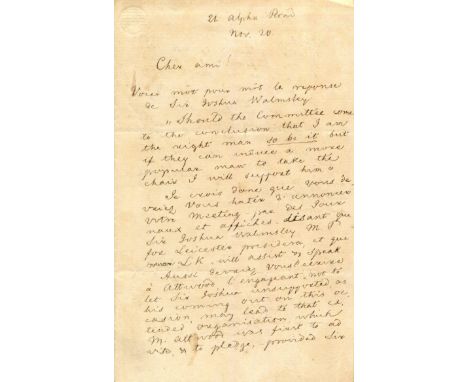 21 Alpha Road
Nov. 20
Cher ami!
Voici mot pour mot la reponse
de Sir Joshua Walmsley
"Should the Committee come
to the conclusion that I am
the right man so be it but
if they can induce a more
popular man to take the
chair I will support him"
Je crois donc que vous de
vriez vous hater d'annoncer
votre Meeting par des Jour
naux et affiches disant que
Sir Joshua Walmsley M.P.
for Leicester presidera, et que
L.K. will assist & speak
Aussi devriez vous ecrire
a Attwood l'engageant not to
let Sir Joshua unsupported as
his coming out on this oc
casion may lead to that ex
tended organisation which
M. Attwood was first to ad
vise & to pledge, provided Sir